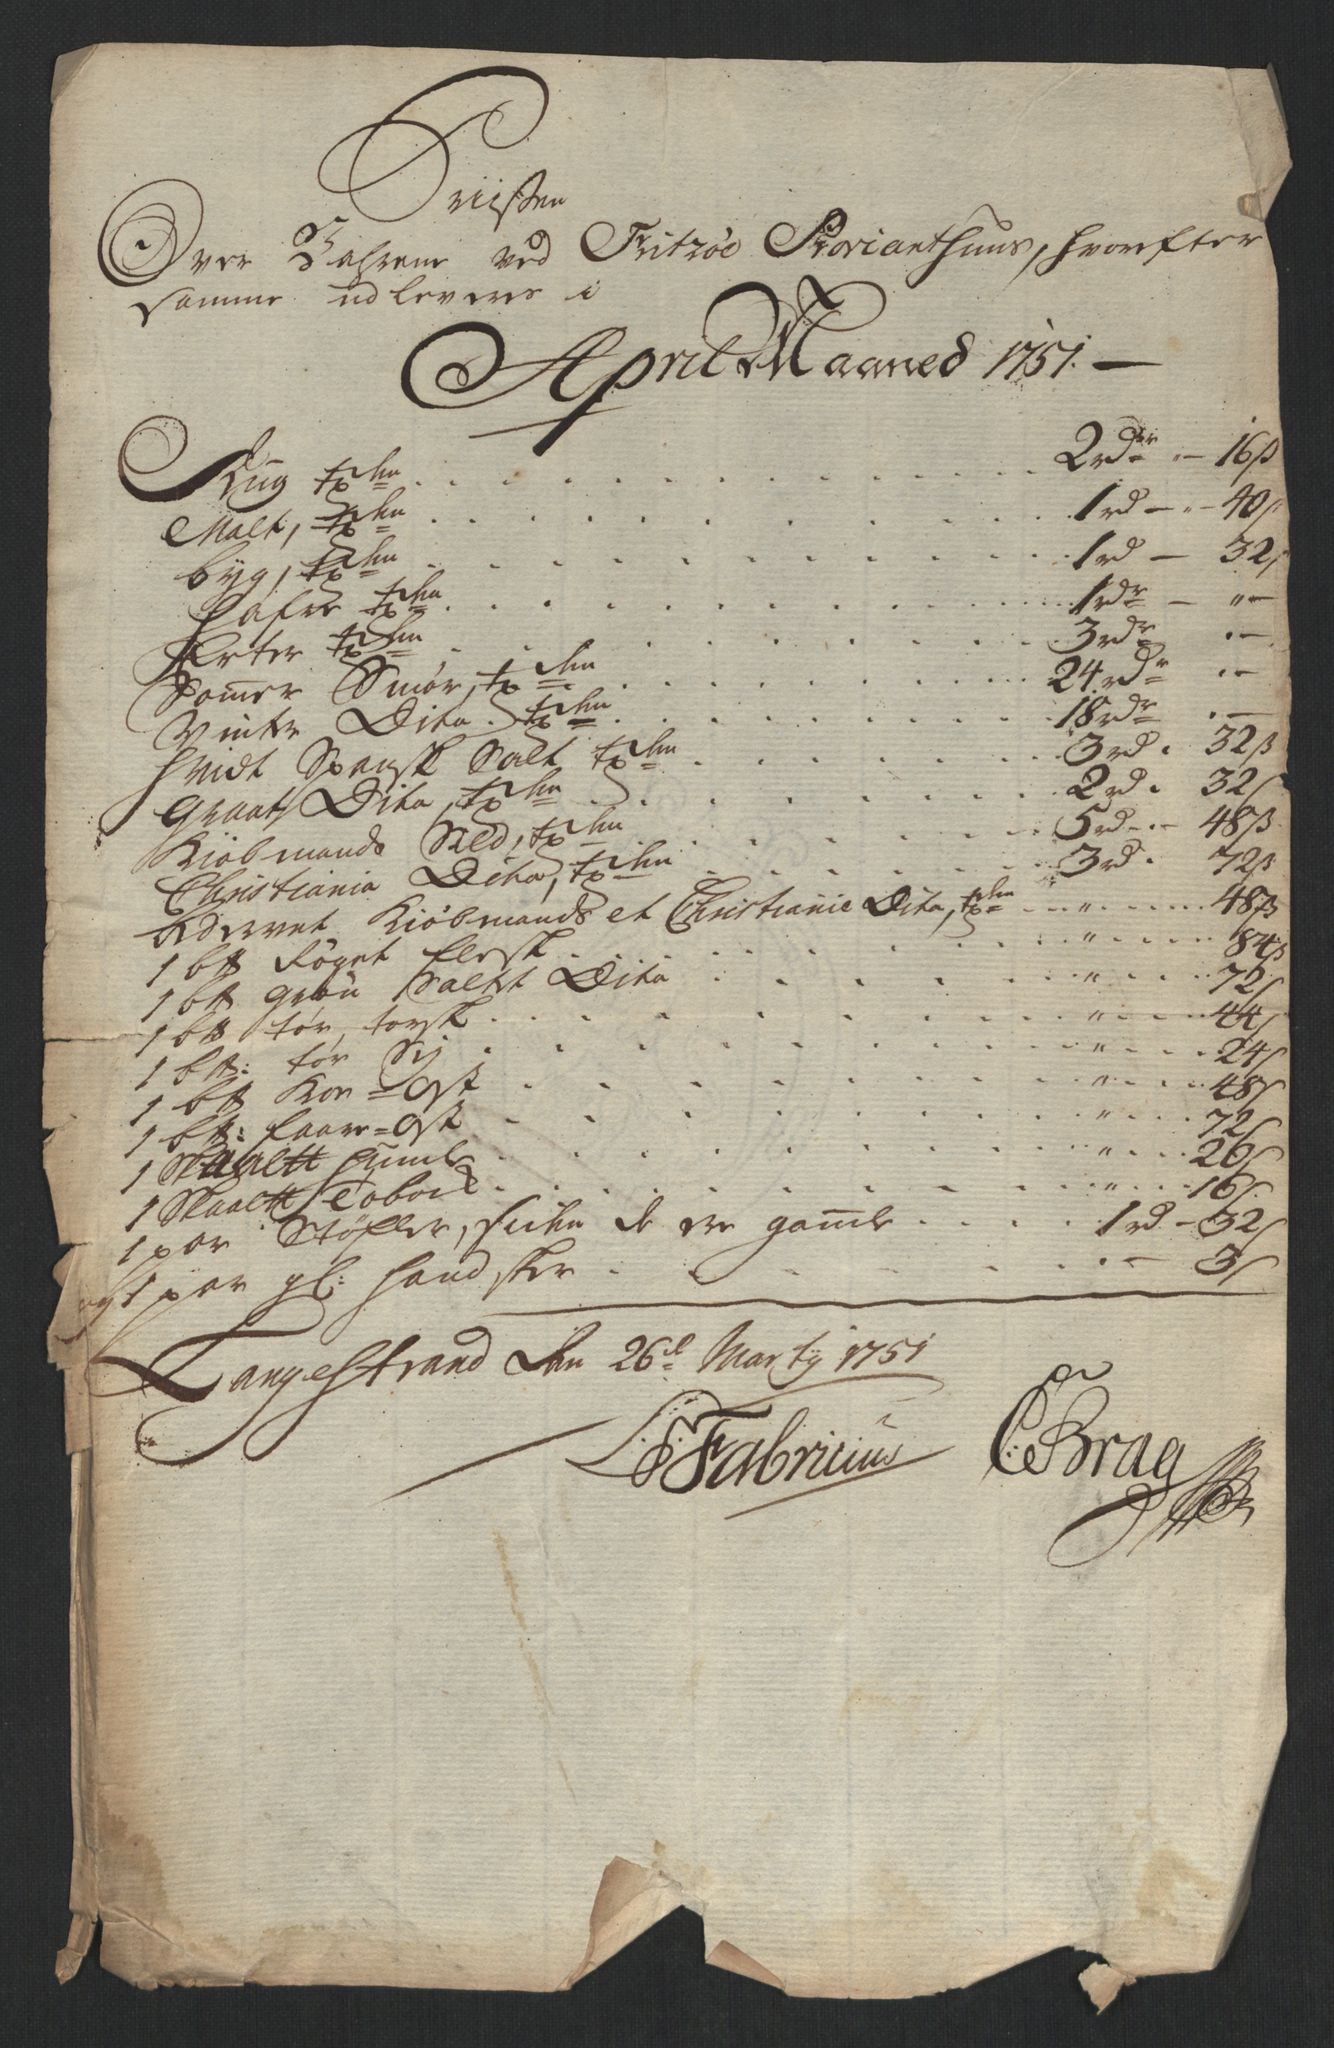 Priisten
Over Vahrene ved Fritzöe Provianthuus, hvorefter
samme udleveres i
April Maaned 1751. —
Rug tønn . . . 2 rdr „ — 16 ß
Malt, tønn . . . 1 rd — „ — 40 ß
byg, tønn . . . 1 rd — 32 ß
Hafre tønn . . . 1 rdr — „ —
Erter tønn . . . 3 rdr „ —
Somer Smör, tønn . . . 24 rdr „ —
Vinter Dito tønn . . . 18 rdr . —
Hvidt Spansk Salt tønn . . . 3 rd . 32 ß
Graat Dito, tønn . . . 2 rd . 32 ß
Kiöbmands Sild, tønn . . . 5 rd . — 48 ß
Christiania Dito, tønn . . . 3 rd . 72 ß
Kiöbmands et Christianie Dito, tønn . . . „ 48 ß
1 b℔ Röget flesk . . . „ 84 ß
1 b℔ grön Saltet Dito . . . „ 72 ß
1 b℔ tör, torsk . . . „ 44 ß
1 b℔: tör Sej . . . „ 24 ß
1 b℔ Koe = Ost . . . „ 48 ß
1 b℔: faare = Ost . . . „ 72 ß
1 Skaal℔ Humle . . . „ 26 ß
1 Skaal℔ Tobak . . . „ 16 ß
1 par Stöfler, siden de ere gamle . . . 1 rd — 32 ß
1 par gl: Handsker . . . „ — 3 ß
Langestrand den 26de Marty 1751
Fabricius C: Brag